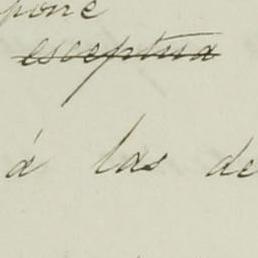 pone
esceptua
á las de